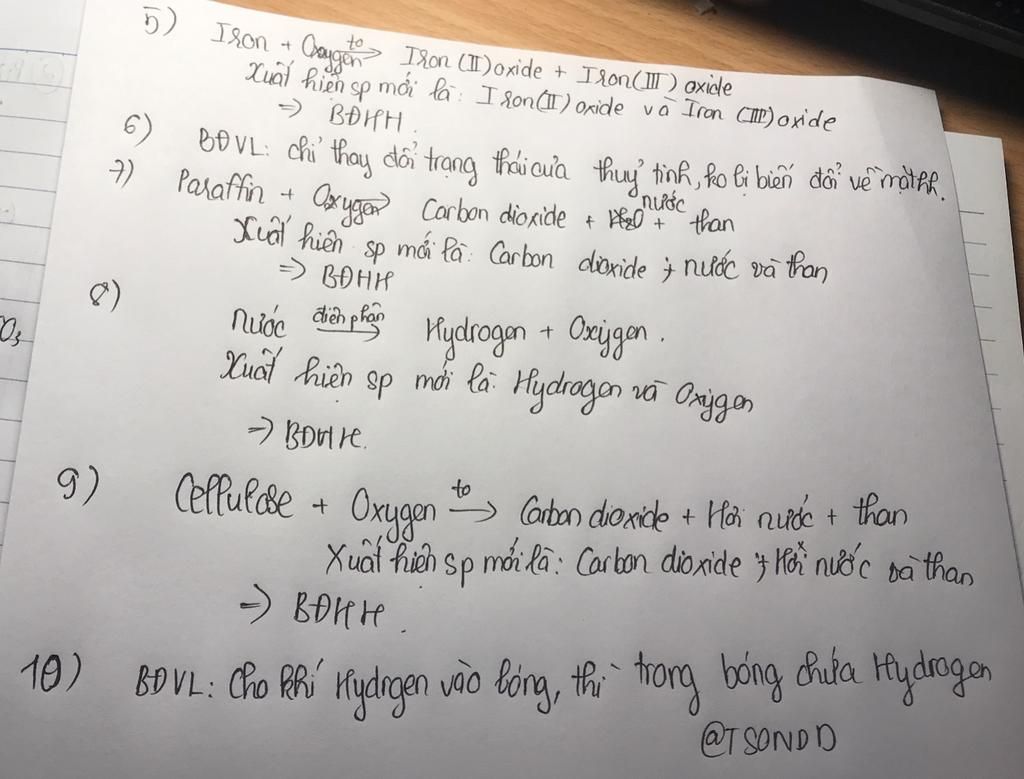 5) Iron + Oxygen to→ Iron (II) oxide + Iron (III) oxide
Xuất hiện sp mới là: Iron (II) oxide và Iron (III) oxide
=> BĐHH.
6) BĐVL: chỉ thay đổi trạng thái của thuỷ tinh, ko bị biến đổi về mặt hh.
7) Paraffin + Oxygen → Carbon dioxide + nước + than
Xuất hiện sp mới là: Carbon dioxide; nước và than
=> BĐHH
8)
Nước điện phân→ Hydrogen + Oxygen.
Xuất hiện sp mới là: Hydrogen và Oxygen
=> BĐHH.
9) Cellulose + Oxygen to→ Carbon dioxide + Hơi nước + than
Xuất hiện sp mới là: Carbon dioxide; Hơi nước và than
=> BĐHH.
10) BĐVL: Cho khí Hydrgen vào bóng, thì trong bóng chứa Hydrogen
@TSONDD